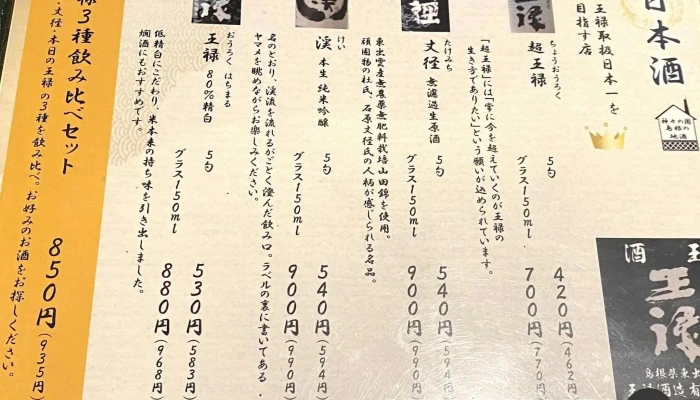 日本酒
王禄取扱日本一を
目指す店
神々の国
島根の
地酒
ちょうおうろく
超王禄
5勺
420円(462円)
グラス150ml
700円(770円)
「超王禄」には「常に今を超えていくのが王禄の
生き方でありたい」という願いが込められています。
たけみち
丈径 無濾過生原酒
5勺
540円(594円)
グラス150ml
900円(990円)
東出雲産無農薬無肥料栽培山田錦を使用。
頑固物の杜氏、石原丈径氏の人柄が感じられる名品。
けい
渓 本生 純米吟醸
5勺
540円(594円)
グラス150ml
900円(990円)
名のとおり、渓流を流れるがごとく澄んだ飲み口。ラベルの裏に書いてある
ヤマメを眺めながらお楽しみください。
おうろく はちまる
王禄 80%精白
5勺
530円(583円)
グラス150ml
880円(968円)
低精白にこだわり、米本来の持ち味を引き出しました。
燗酒にもおすすめです。
禄3種飲み比べセット
850円(935円)
・丈径・本日の王禄の3種を飲み比べ。お好みのお酒をお探しください。
丈径
酒王
王禄
島根県東出
王禄酒造有